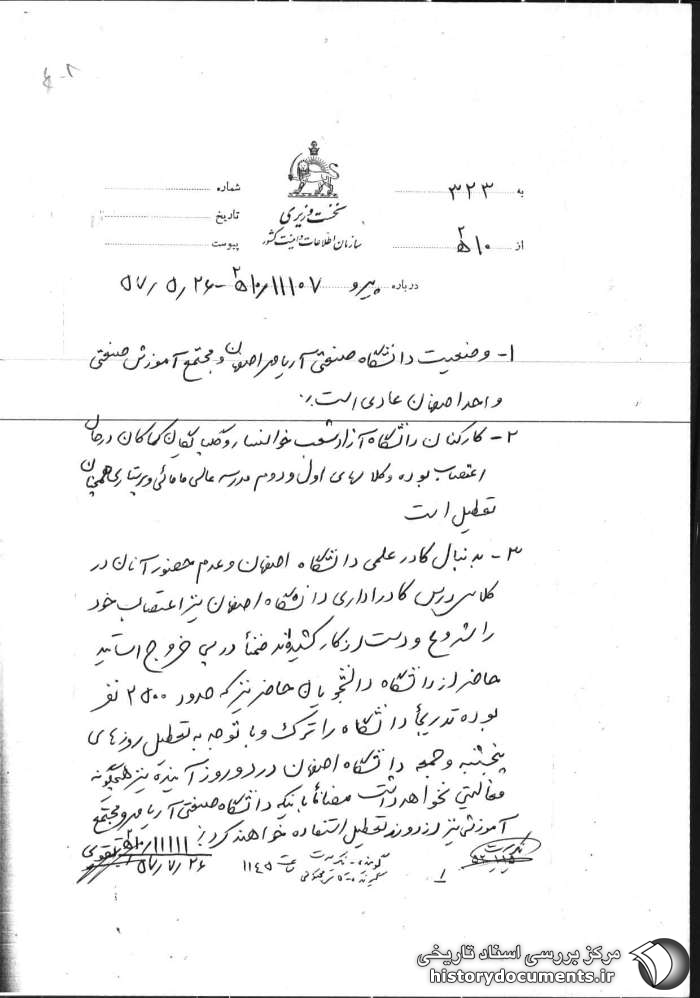 به ۳۲۳
شماره
نخست وزیری
تاریخ
سازمان اطلاعات و امنیت کشور
از ۱۰ ه ۲
پیوست
درباره پیرو ۱۱۱۰۷/۱۰ ه ۲ - ۵۷/۵/۲۶
۱- وضعیت دانشگاه صنعتی آریامهر اصفهان و مجتمع آموزش صنعتی
واحد اصفهان عادی است.
۲- کارکنان دانشگاه آزاد شعب خوانسار و گلپایگان کماکان در حال
اعتصاب بوده و کلاسهای اول و دوم مدرسه عالی مامائی و پرستاری همچنان
تعطیل است
۳- بدنبال کادر علمی دانشگاه اصفهان و عدم حضور آنان در
کلاس درس کادر اداری دانشگاه اصفهان نیز اعتصاب خود
را شروع و دست از کار کشیده‌اند ضمناً در پی خروج اساتید
حاضر از دانشگاه دانشجویان حاضر نیز که حدود ۲۵۰۰ نفر
بوده تدریجاً دانشگاه را ترک و با توجه به تعطیل روزهای
پنجشنبه و جمعه دانشگاه اصفهان در دو روز آینده نیز هیچگونه
فعالیتی نخواهد داشت مضافاً باینکه دانشگاه صنعتی آریامهر و مجتمع
آموزشی نیز از دو روز تعطیل استفاده خواهند کرد.
۱۱۱۱۱/۱۰ ه ۲ تقوی
۵۷/۷/۲۶
گوینده - ندرت
ساعت ۱۱۴۵
ندرت
مرکز بررسی اسناد تاریخی
historydocuments.ir